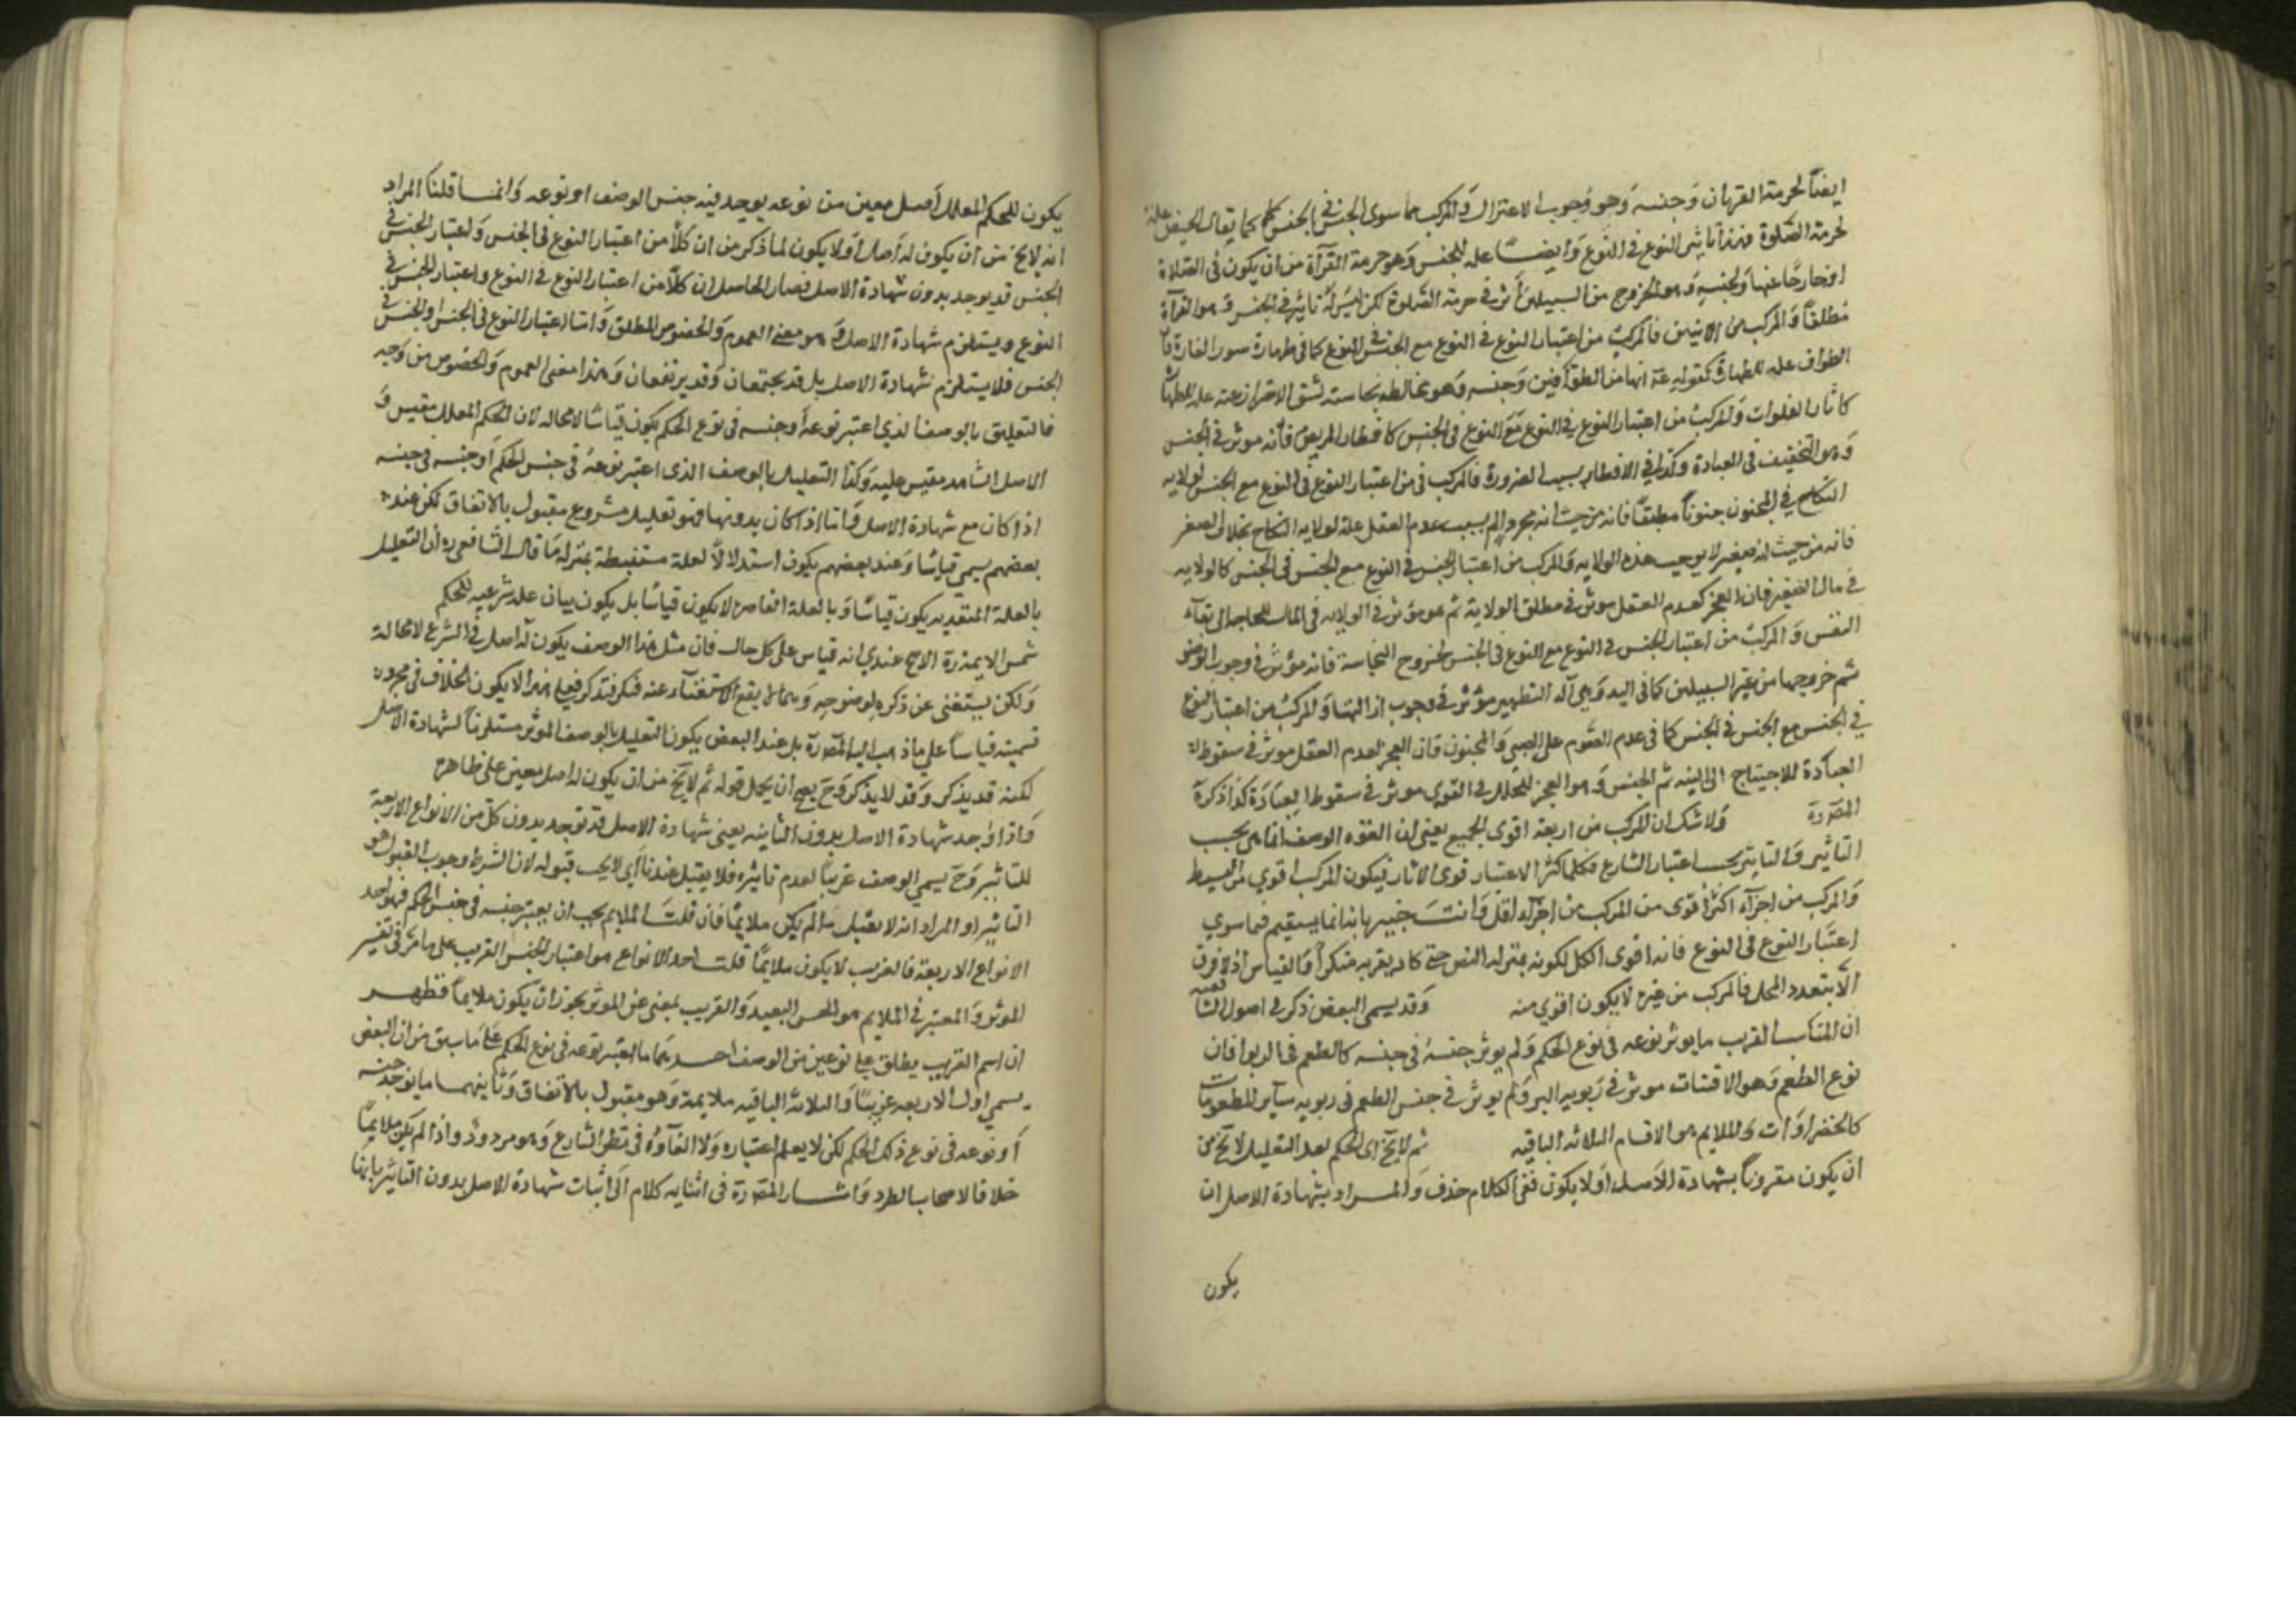 ايضاً لحرمة القربان وَجنسه وَهو وُجوب الاعتزال وَالمركب مما سوى الجنس في الجنس كما يقال الحيض علة
لحرمة الصَّلوة فهذا تاثير النوع في النوع وَايضاً علة للجنس وَهو حرمة القرآة من ان يكون في الصَّلاة
او خارجًا عنها وَلجنسه وَهو الخروج من السبيلين أثر في حرمة الصَّلوة لكن ليسَ لهُ تاثير في الجنس وَهو القرآة
مُطلقاً وَالمركب من الاثنين فالمركبُ من اعتبار النوع في النوع مع الجنس في النوع كما في طهارة سور الفارة فان
الطواف علة للطهارة كقوله عَم انها من الطوّافين وَجنسه وَهو مخالطة نجاسة يشق الاحتراز عنه علة للطهارة
كابار الفلوات وَالمركبُ من اعتبار النوع في النوع مَعَ النوع في الجنس كافطار المريض فانه موثر في الجنس
وَهو التخفيف في العبادة وكذا في الافطار بسبب الضرورة فالمركب من اعتبار النوع في النوع مع الجنس لولاية
النكاح في المجنون جنوناً مطبقاً فانه من حيث انه عجز بسبب عدم العقل علة لولاية النكاح بخلاف الصغر
فانه من حيث انه صغير لا يوجب هذه الولاية وَالمركب من اعتبار الجنس في النوع مع الجنس في الجنس كالولايه
في مال الصغير فان العجز كعدم العقل موثر في مطلق الولاية ثم هو موثر في الولاية في المال للحاجة الى بقآء
النفس وَ المركبُ من اعتبار الجنس في النوع مع النوع في الجنس لخروج النجاسة فانه مؤثر في وجوب الوضو
ثم خروجها من غير السبيلين كما في اليد وَهي آلة التطهير مؤثر في وجوب ازالتها وَالمركبُ من اعتبار النوع
في الجنس مع الجنس في الجنس كما في عدم الصَّوم على الصبي وَالمجنون فان العجز لعدم العقل موثر في سقوط
العبادة للاحتياج الى النية ثم الجنس وَهو العجز للخلل في القوى موثر في سقوط العبَادَة كذا ذكرهُ
المصَ رَهَ وَلا شك ان المركب من اربعة اقوى الجميع يعني ان القوه الوصف انما هي بحسب
التاثير وَالتاثير بحسب اعتبار الشارع فكلما كثر الاعتبار قوى الاثار فيكون المركب اقوي من البسيط
وَالمركب من اجزآء اكثر أقوى من المركب من اجزآء اقل وَانتَ خبير بان هذا انما يستقيم فيما سوي
اعتبَار النوع في النوع فانه اقوى الكل لكونه بمنزلة النص حتى كاد يقر به منكر القياس اذ لا فرق
الّا بتعدد المحل فالمركب من غيره لا يكون اقوي منه وَقد يسمى البعض ذكر في اصول الشافعية
ان المناسب القريب ما يوثر نوعه في نوع الحكم وَلم يوثر جنسهُ في جنسه كالطعم في الربوا فان
نوع الطعم وَهو الاقتيات موثر في رَبوية البر وَلم يوثر في جنس الطعم في ربوية ساير المطعومات
كالخضراوَات وَالملايم هو الاقسام الثلاثة الباقيه ثم لا يَخ اى الحكم بعد التعليل لا يَخ من
ان يكون مقروناً بشهادة الاصل اوَلا يكون ففي الكلام حذف وَالمراد بشهادة الاصل ان
يكون
يكون للحكم المعلل اصل معين من نوعه يوجد فيه جنس الوصف او نوعه وَانما قلنا المراد
انه لا يَخ من ان يكون له اصل اوَلا يكون لما ذكر من ان كلاً من اعتبار النوع في الجنس وَاعتبار الجنس في
الجنس قد يوجد بدون شهادة الاصل فصار الحاصل ان كلاً من اعتبار النوع في النوع واعتبار الجنس في
النوع ويستلزم شهادة الاصل وَهو معنى العموم وَالخصوص المطلق وَاما اعتبار النوع في الجنس او الجنس في
الجنس فلا يستلزم شهادة الاصل بل قد يجتمعان وَقد يرتفعان وَهذا معنى العموم وَالخصوص من وَجه
فالتعليق بالوصف الذي اعتبر نوعهُ أو جنسه في نوع الحكم يكون قياسًا لا محالة لان الحكم المعلل مقيس وَ
الاصل الشاهد مقيس عليه وَكذا التعليل بالوصف الذى اعتبر نوعهُ في جنس الحكم اَو جنسه في جنسه
اذا كان مع شهادة الاصل وَاما اذا كان بدونها فهو تعليل مشروع مقبول بالاتفاق لكن عند
بعضهم يسمي قياسًا وَعند بعضهم يكون استدلالاً لعلة مستنبطة بمنزلة مَا قال الشافعي رَه أن التعليل
بالعلة المتعدية يكون قياسًا وَبالعلة القاصرة لا يكون قياسًا بل يكون بيان علة شرعيه للحكم
شمس الايمة رَهَ الاصح عندي انه قياس على كل حال فان مثل هذا الوصف يكون لهُ اصل في الشرع لا محالة
وَلكن يستغنى عن ذكره لوضوحه وَربما لا يقع الاستغنآء عنه فنذكره فعلى هذا لا يكون الخلاف في مجرد
تسميته قياساً على ما ذهب اليه المصَ رَهَ بل عند البعض يكون التعليل بالوصف الموثر مستلزماً لشهادة الاصل
لكنه قد يذكر وَقد لا يذكر وَحَ يصح ان يحمل قوله ثم لا يَخ من ان يكون له اصل معين على ظاهره
وَاذا وُجد شهادة الاصل بدون التاثير يعني شهادة الاصل قد توجد بدون كل من الانواع الاربعة
للتاثير وَحَ يسمي الوصف غريبًا لعدم تاثيره فلا يقبل عندنا أي لا يجب قبوله لان الشرط وجوب القبول هو
التاثير او المراد انه لا يقبل ما لم يكن ملايمًا فان قلتَ الملايم يجب ان يعتبر جنسه في جنس الحكم فهو احد
الانواع الاربعة فالغريب لا يكون ملايمًا قلتَ احد الانواع هو اعتبار الجنس القريب على ما مرّ في تفسير
الموثر وَالمعتبر في الملايم هو الجنس البعيد وَالقريب بمعنى غير الموثر يجوز ان يكون ملايماً فظهر
ان اسم القريب يطلق على نوعين من الوصف احدهما ما اعتبر نوعه في نوع الحكم على مَا سبق من ان البعض
يسمي اول الاربعة غريبًا وَالثلاثة الباقيه ملايمة وَهو مقبول بالاتفاق وَثانيهما ما يوجد جنسه
أو نوعه في نوع ذلك الحكم لكن لا يعلم اعتباره وَلا الغآوُهُ في نظر الشارع وَهو مردود واذا لم يكن ملايمًا
خلافا لاصحاب الطرد وَاشار المصَ رَهَ في اثنايه كلام الَى اثبات شهادة الاصل بدون التاثير بانها